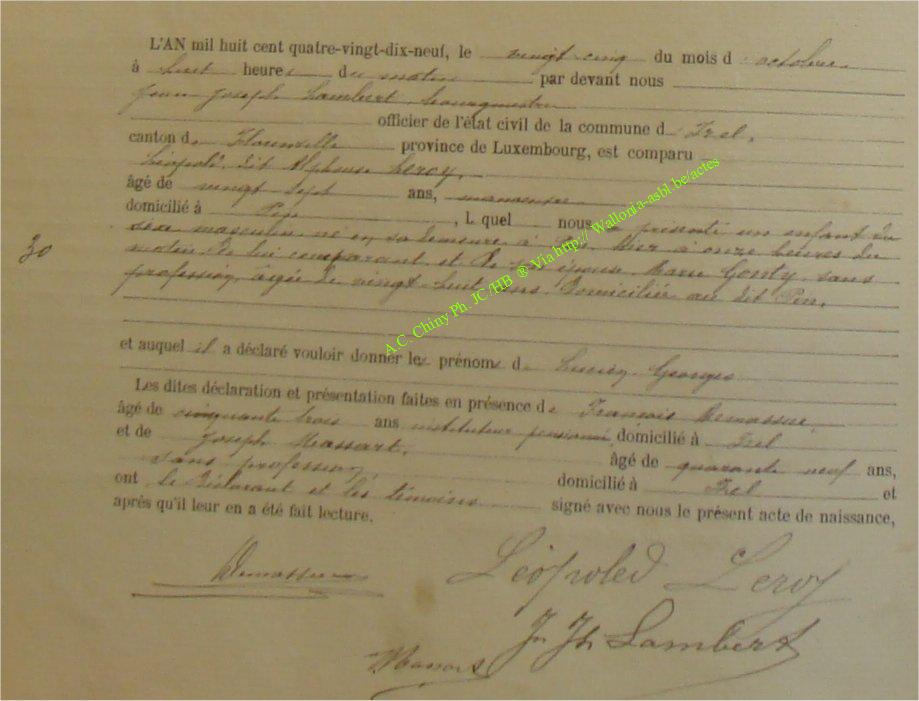 L'AN mil huit cent quatre-vingt-dix-neuf, le vingt cinq du mois d'octobre
à huit heures du matin par devant nous
Jean Joseph Lambert, bourgmestre
officier de l'état civil de la commune d'Izel,
canton de Florenville province de Luxembourg, est comparu
Léopold, dit Alphonse Leroy,
âgé de vingt sept ans, manoeuvre
domicilié à Pin, L quel nous a présenté un enfant du
sexe masculin né en sa demeure à Pin, hier à onze heures du
matin de lui comparant et de son épouse Marie Gourty, sans
profession, âgée de vingt huit ans domiciliée au dit Pin,
30
et auquel il a déclaré vouloir donner les prénoms de Lucien Georges
Les dites déclaration et présentation faites en présence de François Demasseur,
âgé de cinquante trois ans instituteur pensionné, domicilié à Izel
et de Joseph Massart, âgé de quarante neuf ans,
sans profession, domicilié à Izel et
ont le déclarant et les témoins signé avec nous le présent acte de naissance,
après qu'il leur en a été fait lecture.
Léopoled Leroy
Jn Jh Lambert
A.C. Chiny Ph. JC /HB ® Via http:// Wallonia-asbl.be/actes